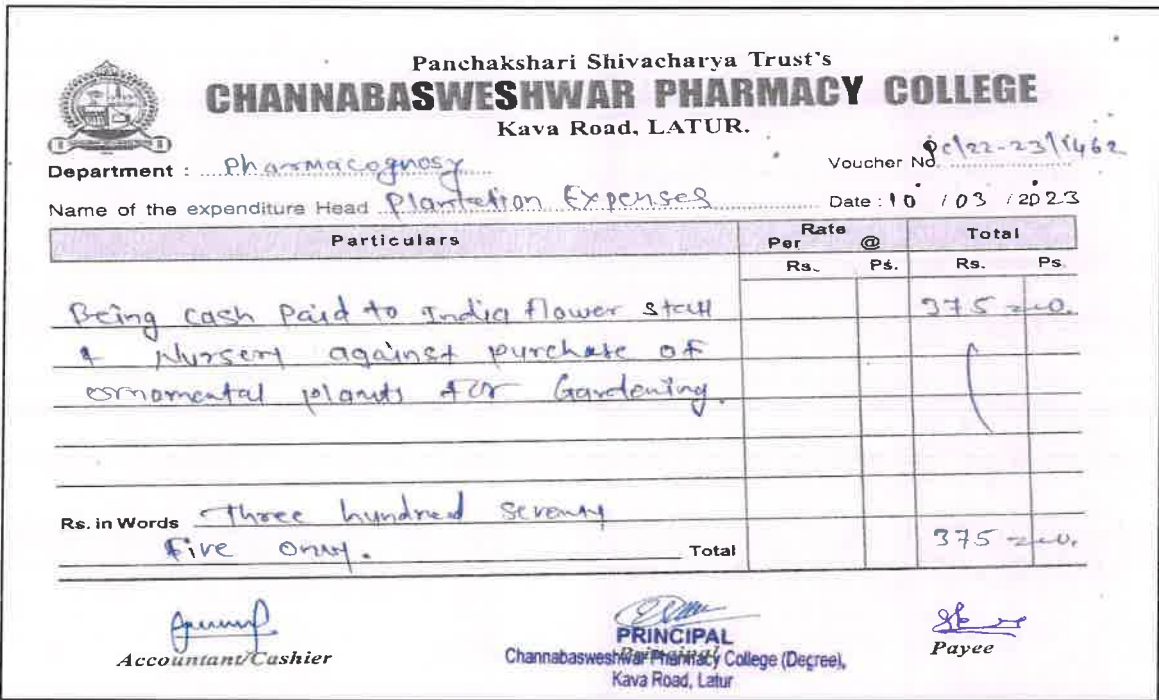 Panchakshari Shivacharya Trust's
CHANNABASWESHWAR PHARMACY COLLEGE
Kava Road, LATUR.
Department : Pharmacognosy
Voucher No. Pc/22-23/1462
Name of the expenditure Head Plantation Expenses Date : 10 / 03 / 2023
Particulars Rate Per @ Total
Rs. Ps. Rs. Ps.
Being cash Paid to India flower stall 375
& Nursery against purchase of
ornamental plants for Gardening.
Rs. in Words Three hundred Seventy
Five Only. Total 375
Accountant/Cashier
PRINCIPAL
Channabasweshwar Pharmacy College (Degree),
Kava Road, Latur
Payee